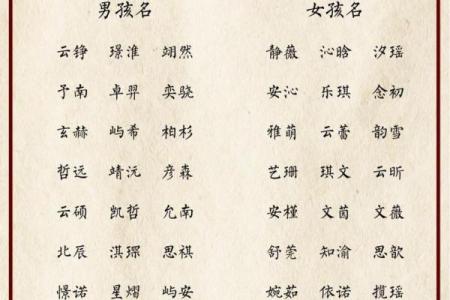 男孩名 女孩名
云铮 璟淮 翊然 静薇 沁晗 汐瑶
予南 卓羿 奕骁 安沁 乐琪 念初
玄赫 屿希 柏杉 雅萌 云蕾 韵雪
哲远 靖沅 彦森 艺珊 琪文 云昕
云硕 凯哲 允南 安槿 文茵 文薇
北辰 淇琛 思祺 舒莞 知渝 思歆
憬诺 星熠 屿安 婉茹 依诺 揽瑶